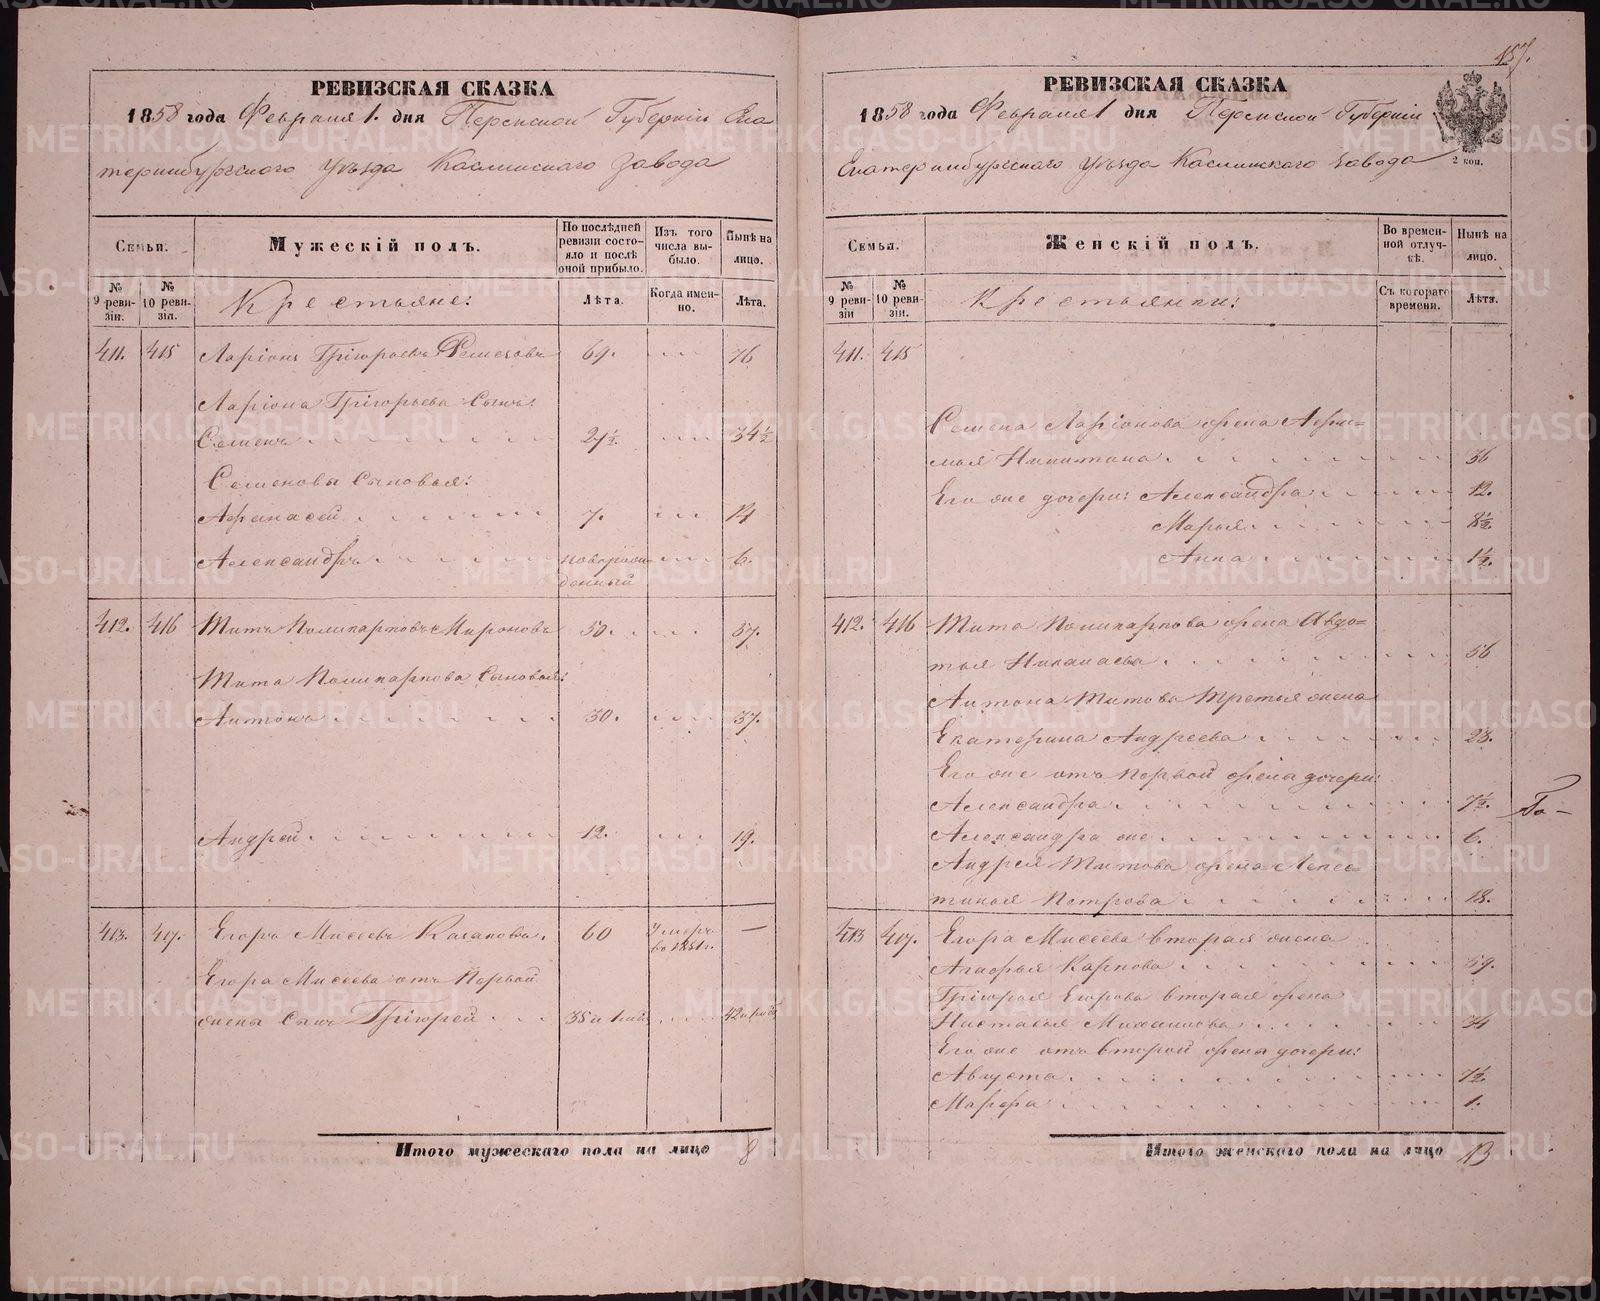 РЕВИЗСКАЯ СКАЗКА
1858 года Февраля 1. дня Пермской Губерніи Ека
теринбургскаго Уѣзда Каслинскаго Завода
Семьи.
Мужескій полъ.
По послѣдней ревизіи состояло и послѣ оной прибыло.
Изъ того числа выбыло.
Нынѣ на лицо.
№ 9 ревизіи.
№ 10 ревизіи.
Крестьяне:
Лѣта.
Когда именно.
Лѣта.
411. 415 Ларіонъ Григорьевъ 69. 76
Ларіона Григорьева Сынъ:
Семенъ 27½ 34½
Семеновы Сыновья:
Афанасей 7. 14
Александръ новорожденный 6.
412. 416 Титъ Поликарповъ Мироновъ 50. 57.
Тита Поликарпова Сыновья:
Антонъ 30. 37.
Андрей 12. 19.
413. 417. Егоръ Мисеевъ 60 Умеръ въ 1851 г. —
Егора Мисеева отъ Первой
жены Сынъ Григорей 35 и
Итого мужескаго пола на лицо 8
157.
РЕВИЗСКАЯ СКАЗКА
1858 года Февраля 1 дня Пермской Губерніи
Екатеринбургскаго Уѣзда Каслинскаго Завода
2 коп.
Семьи.
Женскій полъ.
Во временной отлучкѣ.
Нынѣ на лицо.
№ 9 ревизіи
№ 10 ревизіи.
Крестьянки:
Съ котораго времени.
Лѣта.
411. 415
Семена Ларіонова жена Афи-
мья Никитина 36
Его же дочери: Александра 12.
Марья 8½
Анна 1½.
412. 416 Тита Поликарпова жена Авдо=
тья Николаева 56
Антона Титова Третья жена
Екатерина Андреева 28.
Его же отъ Первой жены дочери:
Александра 7½.
Александра же 6.
Андрея Титова жена
Петрова 18.
413 417. Егора Мисеева вторая жена
Агафья Карпова 59.
Григорья Егорова вторая жена
Настасья Михайлова 34
Его же отъ второй жены дочери:
Августа 7½.
Марфа 1.
Итого женскаго пола на лицо 13
METRIKI.GASO-URAL.RU